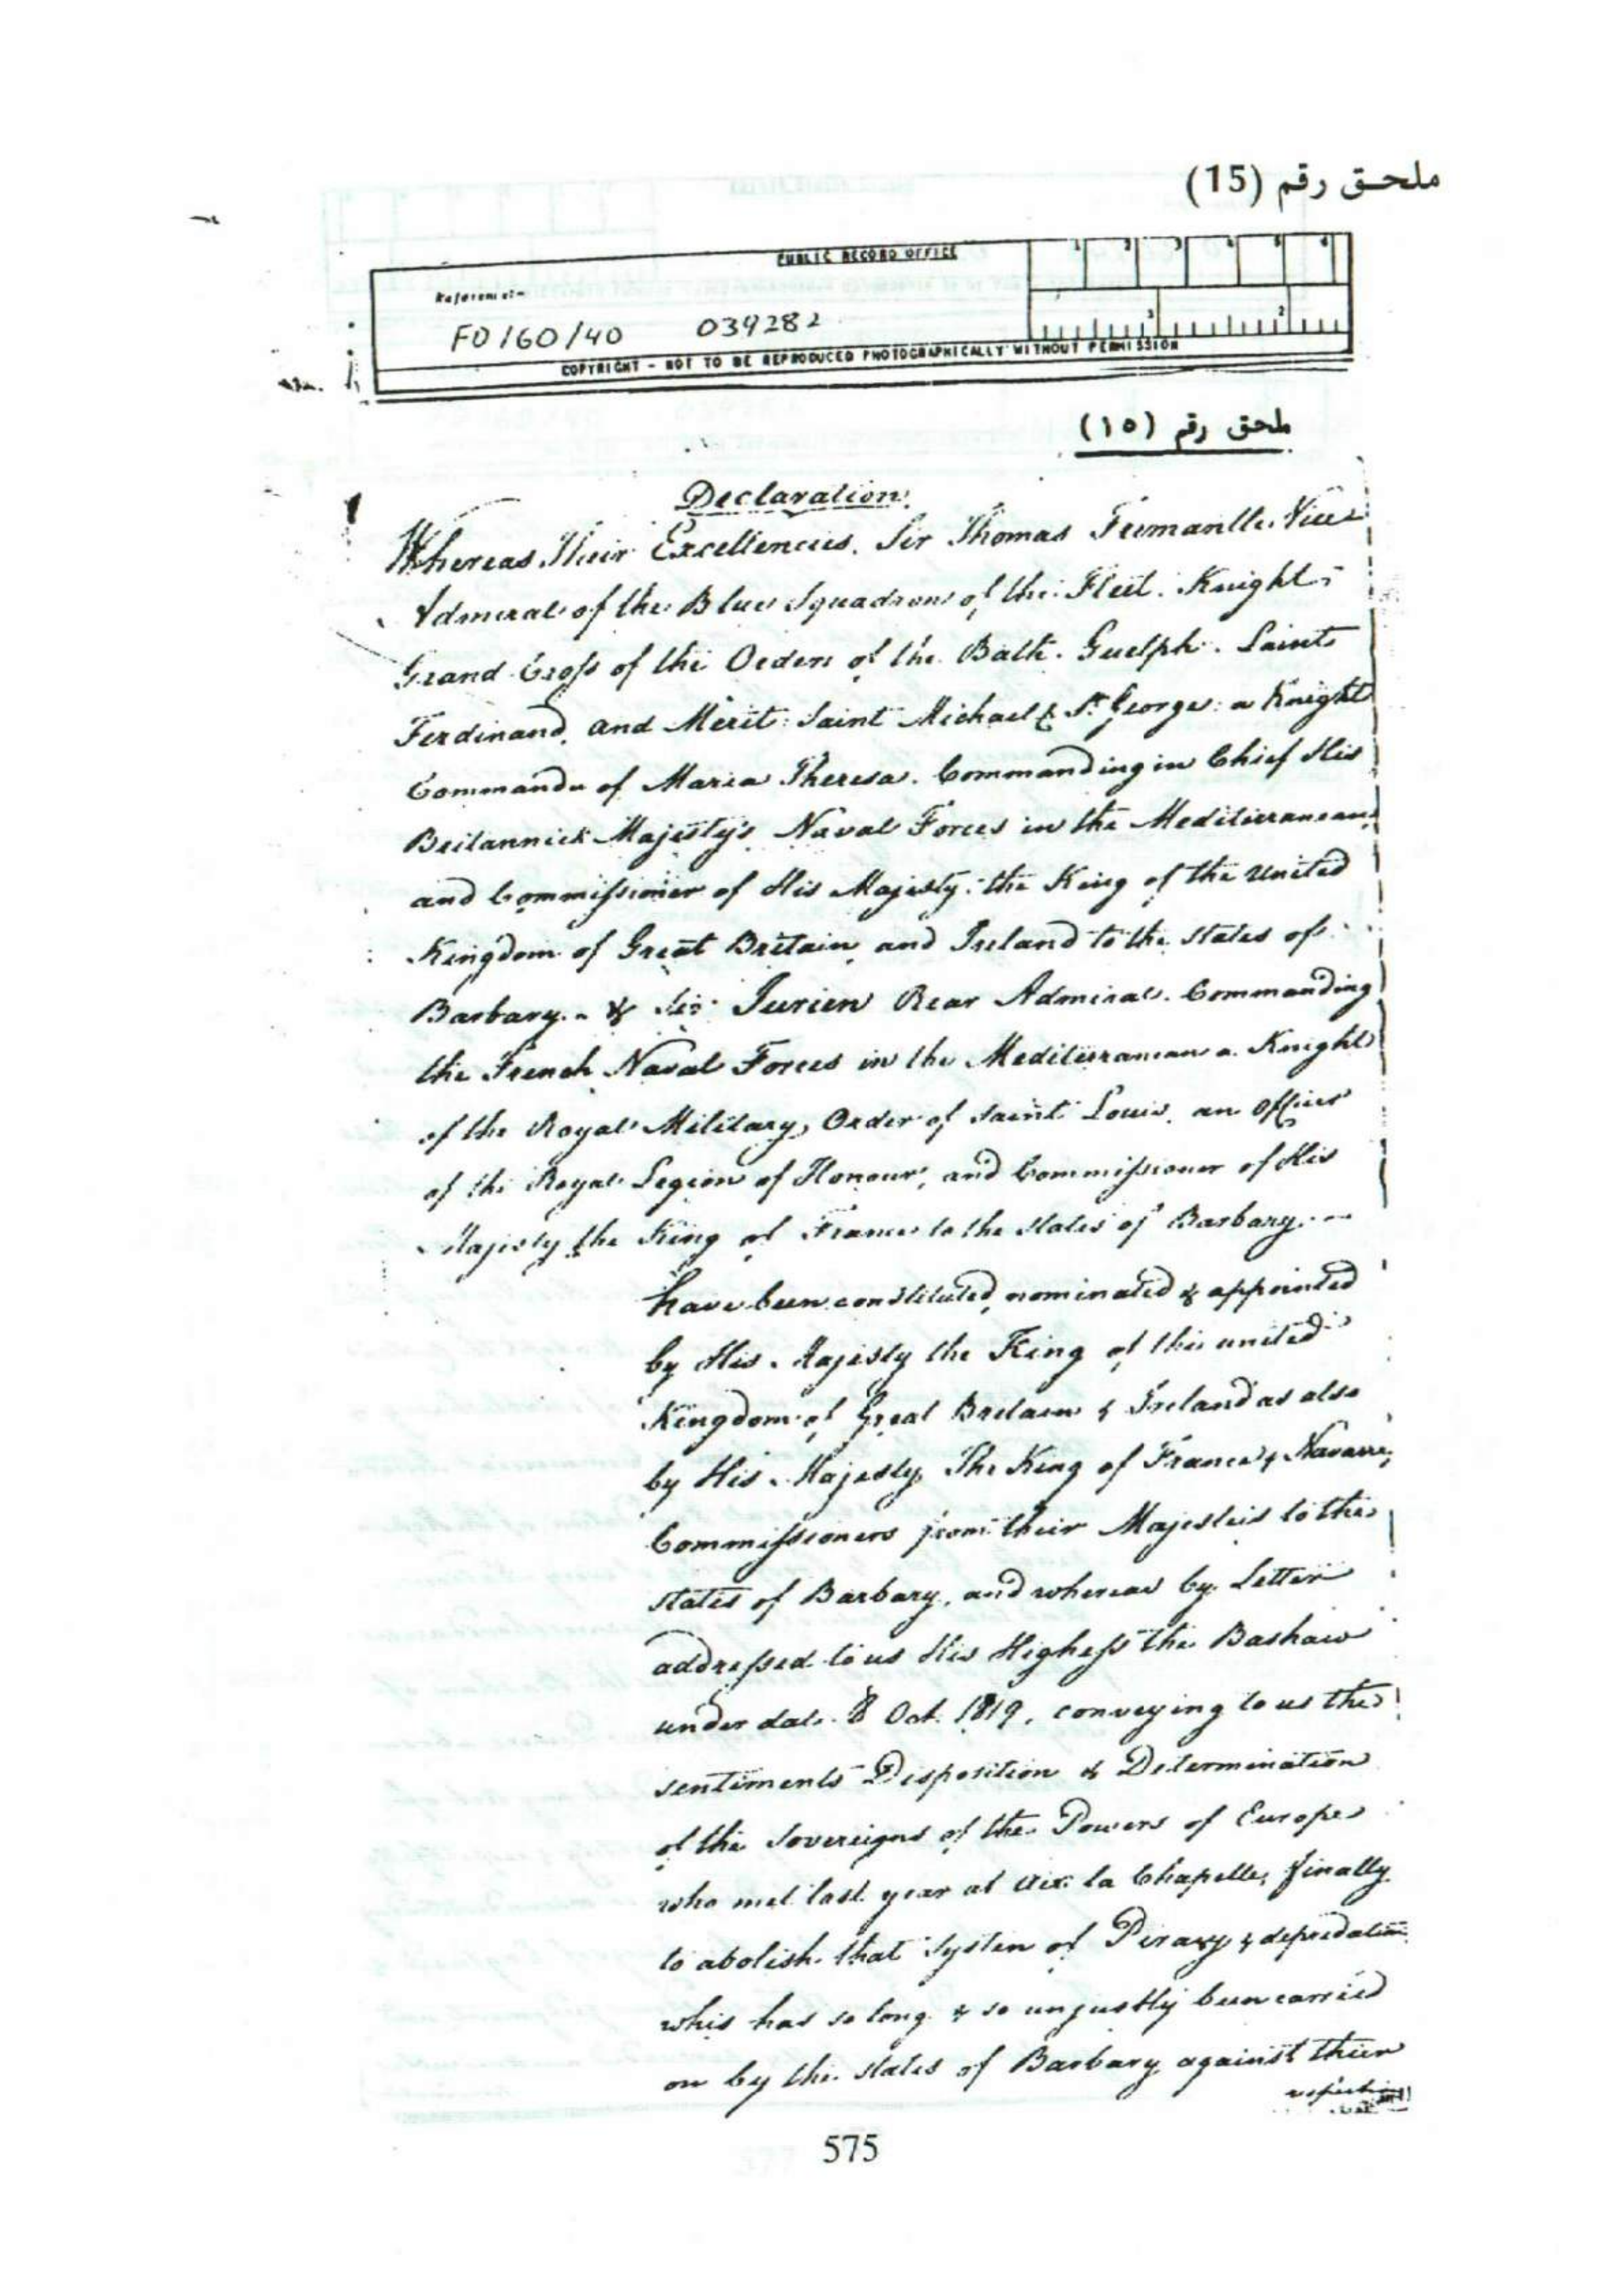 ملحـق رقم (15)
PUBLIC RECORD OFFICE
1 2 3 4 5 6
Reference:-
FO 160/40 039282
1 2
COPYRIGHT - NOT TO BE REPRODUCED PHOTOGRAPHICALLY WITHOUT PERMISSION
ملحق رقم (١٥)
Declaration.
Whereas Their Excellencies, Sir Thomas Fremantle Vice
Admiral of the Blue Squadron of the Fleet. Knight
Grand Cross of the Orders of the Bath. Guelph. Saint
Ferdinand, and Merit: Saint Michael & St. George: a Knight
Commander of Maria Theresa. Commanding in Chief His
Britannick Majesty's Naval Forces in the Mediterranean
and Commissioner of His Majesty the King of the United
Kingdom of Great Britain and Ireland to the States of
Barbary. - & Jurien Rear Admiral. Commanding
the French Naval Forces in the Mediterranean a Knight
of the Royal Military Order of Saint Louis, an Officer
of the Royal Legion of Honour, and Commissioner of His
Majesty the King of France to the States of Barbary. -
have been constituted, nominated & appointed
by His Majesty the King of the united
Kingdom of Great Britain & Ireland as also
by His Majesty The King of France & Navarre,
Commissioners from their Majesteis to the
states of Barbary, and whereas by Letter
addressed to us His Highess the Bashaw
under date 8 Oct. 1819, conveying to us the
sentiments Disposition & Determination
of the Sovereigns of the Powers of Europe
who met last year at Aix la Chapelle, finally
to abolish that System of Piracy & depredation
whis has so long & so unjustly been carried
on by the states of Barbary against their
575